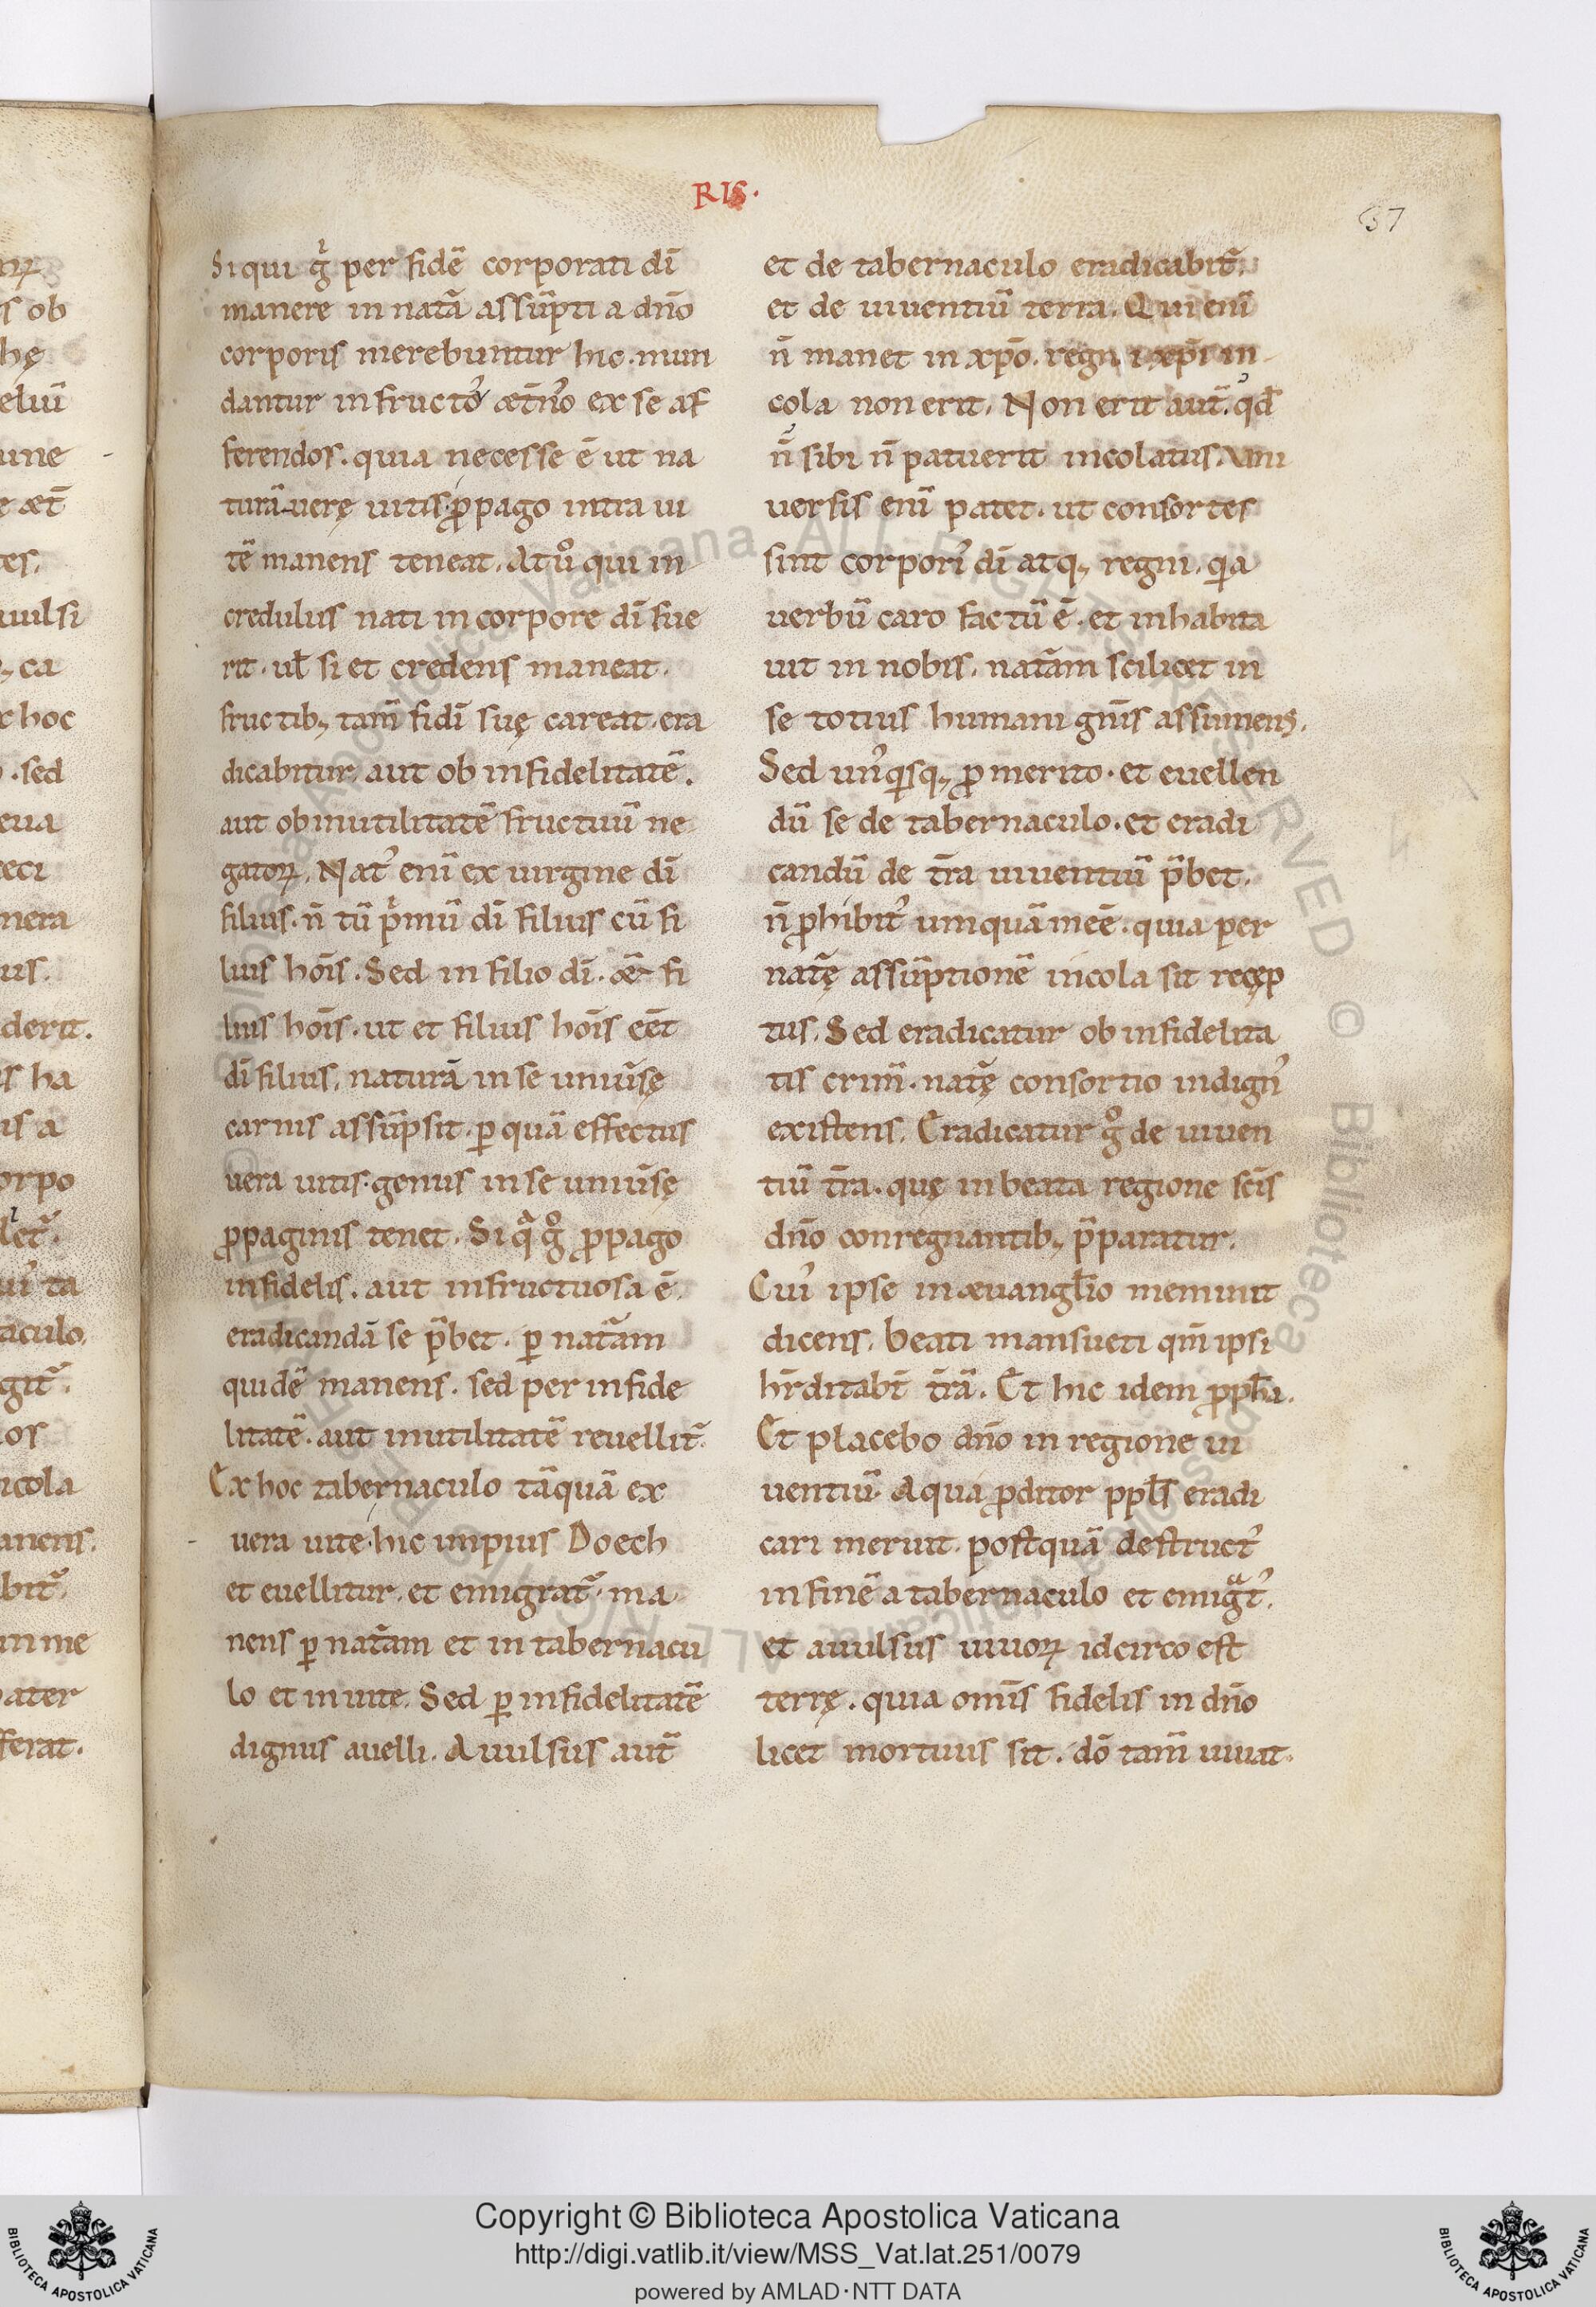 RIS.
57
Si qui gͥ per fidē corporati dī
manere in natā assūpti a dn̄o
corporis merebuntur hic. mun
dantur in fructꝰ ætn̄o ex se af
ferendos. quia necesse ē ut na
turā uerę uitis ꝓpago intra ui
tē manens teneat. At uͦ qui in
credulus nati in corpore dī fue
rit. ul̄ si et credens maneat.
fructibꝫ tam̄ fidī suę careat. era
dicabitur aut ob infidelitatē.
aut ob inutilitatē fructuū ne
gatoꝝ. Natꝰ enī ex uirgine dī
filius. n̄ tū pͥmū dī filius cū fi
lius hoīs. Sed in filio dī. æt fi
lius hoīs. ut et filius hoīs eēt
dī filius, naturā in se uniūsę
carnis assūpsit. ꝑ quā effectus
uera uitis. genus in se uniūsę
ꝓpaginis tenet. Si qͣ gͦ ꝓpago
infidelis. aut infructuosa ē.
eradicandā se p̄bet. ꝑ natām
quidē manens. sed per infide
litatē. aut inutilitatē reuellit᷒.
Ex hoc tabernaculo tāquā ex
uera uite. hic impius Doech
et euellitur. et emigrat᷒. ma
nens ꝑ natām et in tabernacu
lo et in uite. Sed ꝑ infidelitatē
dignus auelli. Auulsus aut̄
et de tabernaculo eradicabit᷒.
et de uiuentiū terra. Qui enī
n̄ manet in xp̄o. regni xp̄i in
cola non erit. Non erit aut̄. qd̄
n̄ sibi n̄ patuerit incolatus. Uni
uersis enī patet. ut consortes
sint corporiꝰ dī atqꝫ regni. qͥa
uerbū caro factū ē. et inhabita
uit in nobis. natām scilicet in
se totius humani gn̄is assumens.
Sed unꝰqͥsqꝫ ꝓ merito. et euellen
dū se de tabernaculo. et eradi
candū de tr̄a uiuentiū p̄bet.
n̄ ꝓhibitꝰ umquā ineē. quia per
natę̄ assūptionē incola sit recęp
tus. Sed eradicatur ob infidelita
tis crim̄. natę̄ consortio indignꝰ
existens. Eradicatur gͦ de uiuen
tiū tr̄a. quę in beata regione sc̄is
dn̄o conregnantibꝫ p̄paratur.
Cuiꝰ ipse in æuangl̄io meminit
dicens. Beati mansueti qm̄ ipsi
hr̄ditabt̄ tr̄ā. Et hic idem ꝓph̄a.
Et placebo dn̄o in regione ui
uentiū. A qua ꝓditor ppl̄s eradi
cari meruit. postquā destructꝰ
in finē a tabernaculo et emigͣtꝰ.
et auulsus uiuoꝝ idcirco est
terrę. quia omīs fidelis in dn̄o
licet mortuus sit. dō tam̄ uiuat.